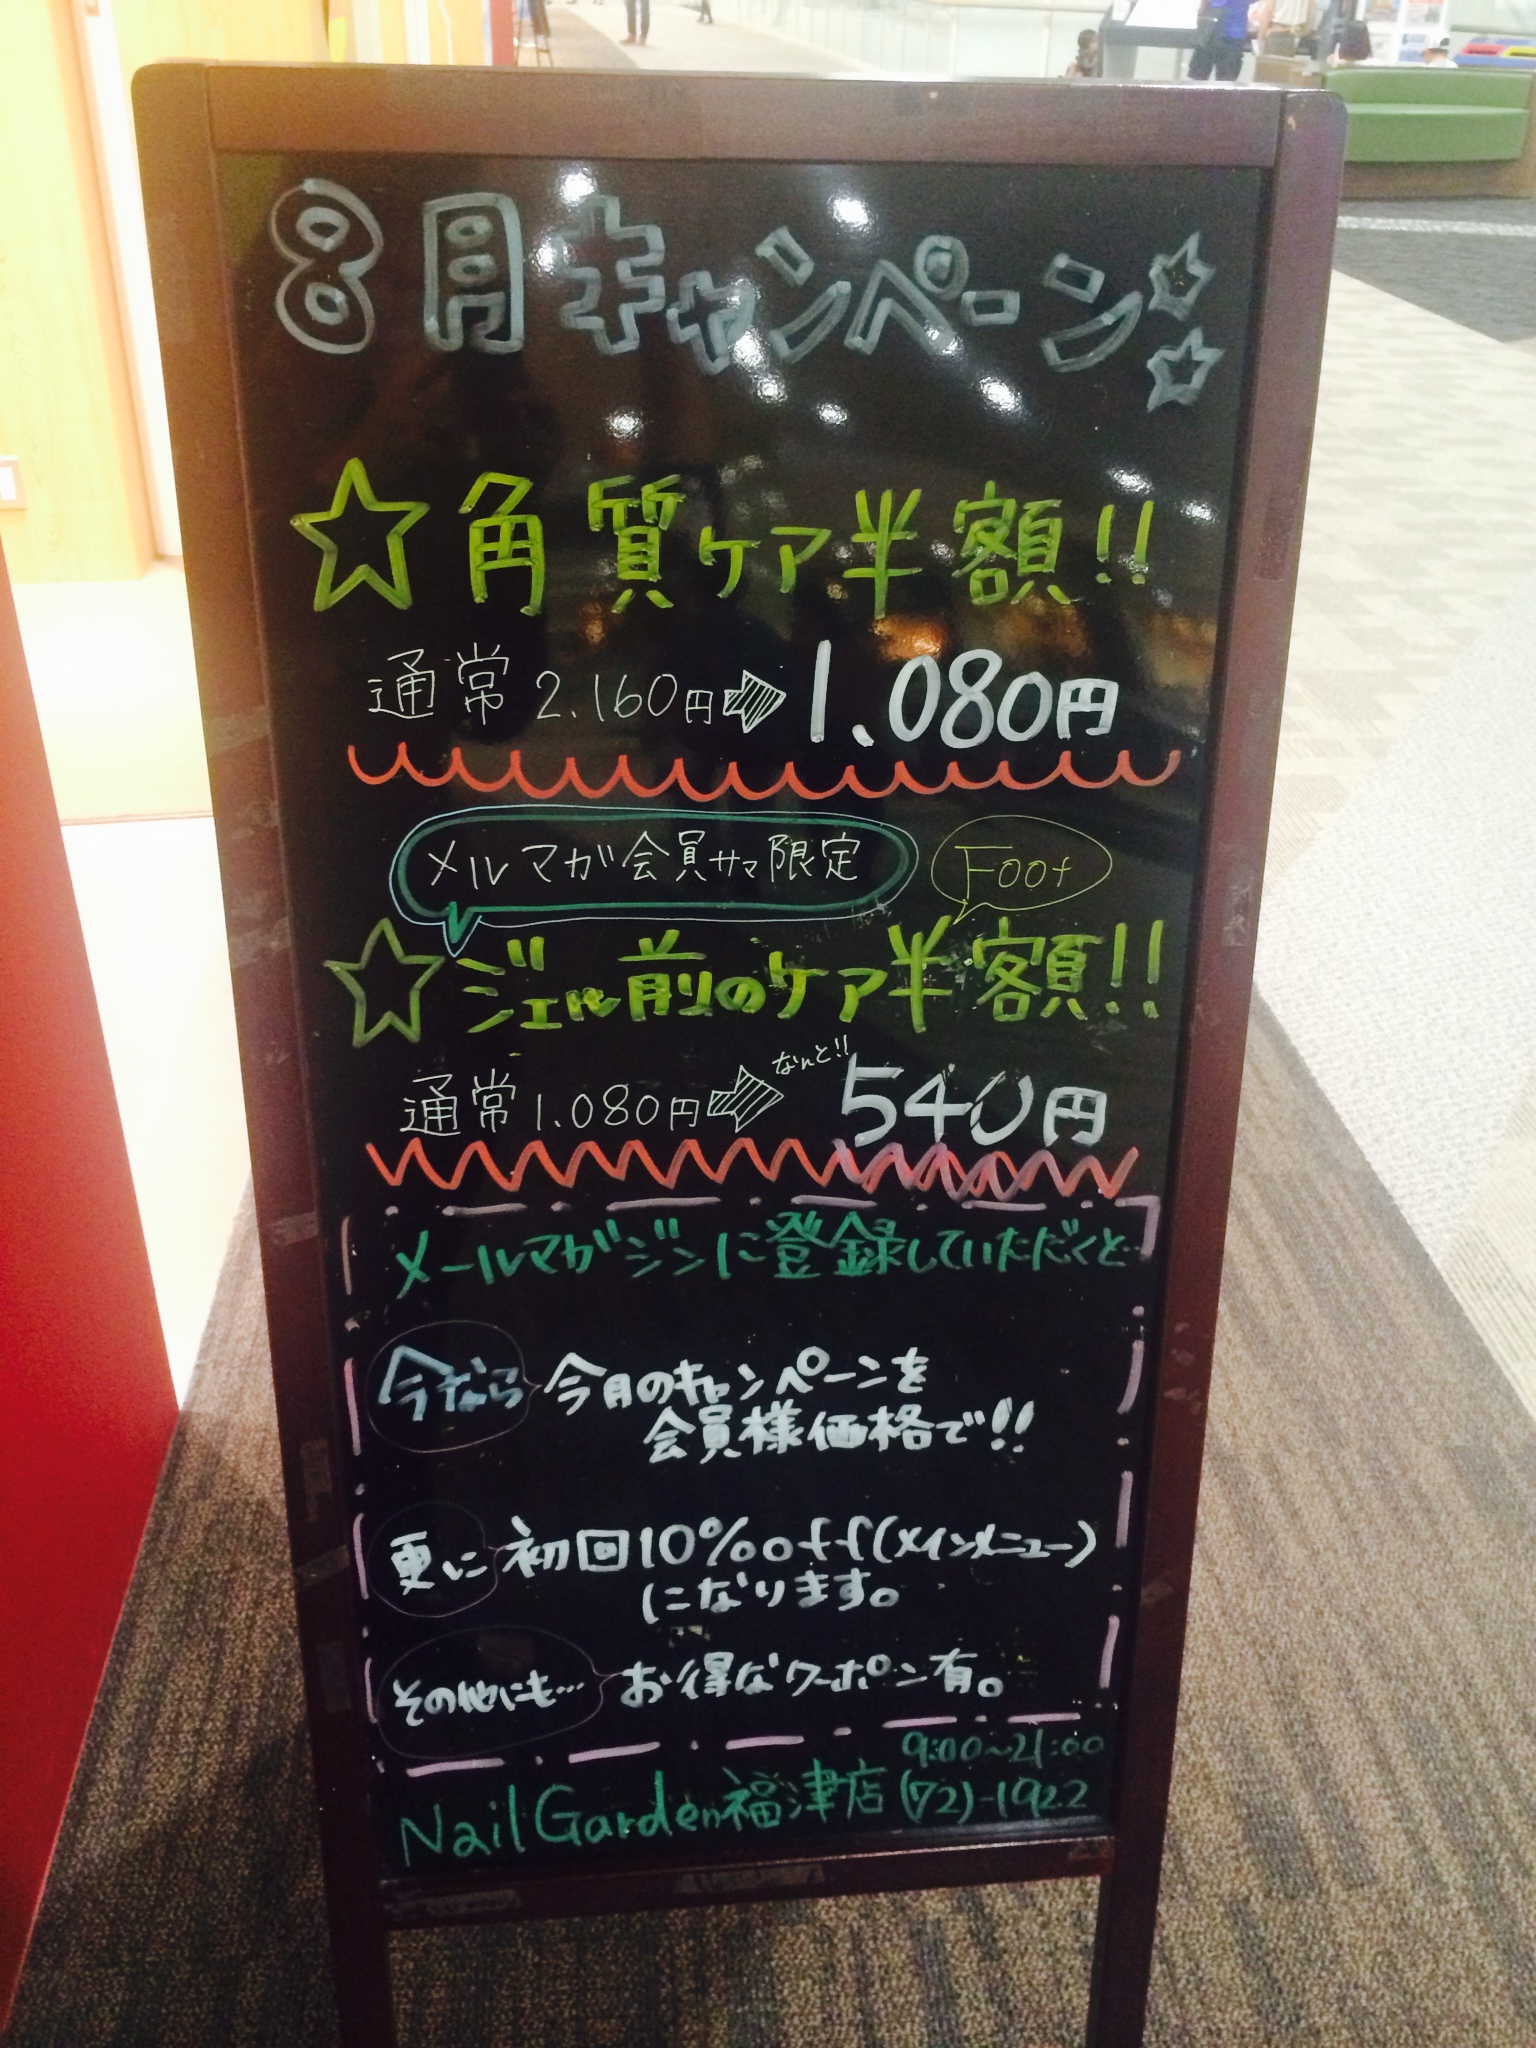 8月キャンペーン
☆角質ケア半額!!
通常2.160円➡1.080円
メルマガ会員サマ限定
Foot
☆ジェル前のケア半額!!
なんと!!
通常1.080円➡540円
メールマガジンに登録していただくと…
今なら 今月のキャンペーンを
会員様価格で!!
更に 初回10%off(メインメニュー)
になります。
その他にも… お得なクーポン有。
9:00~21:00
Nail Garden福津店(72)-1922